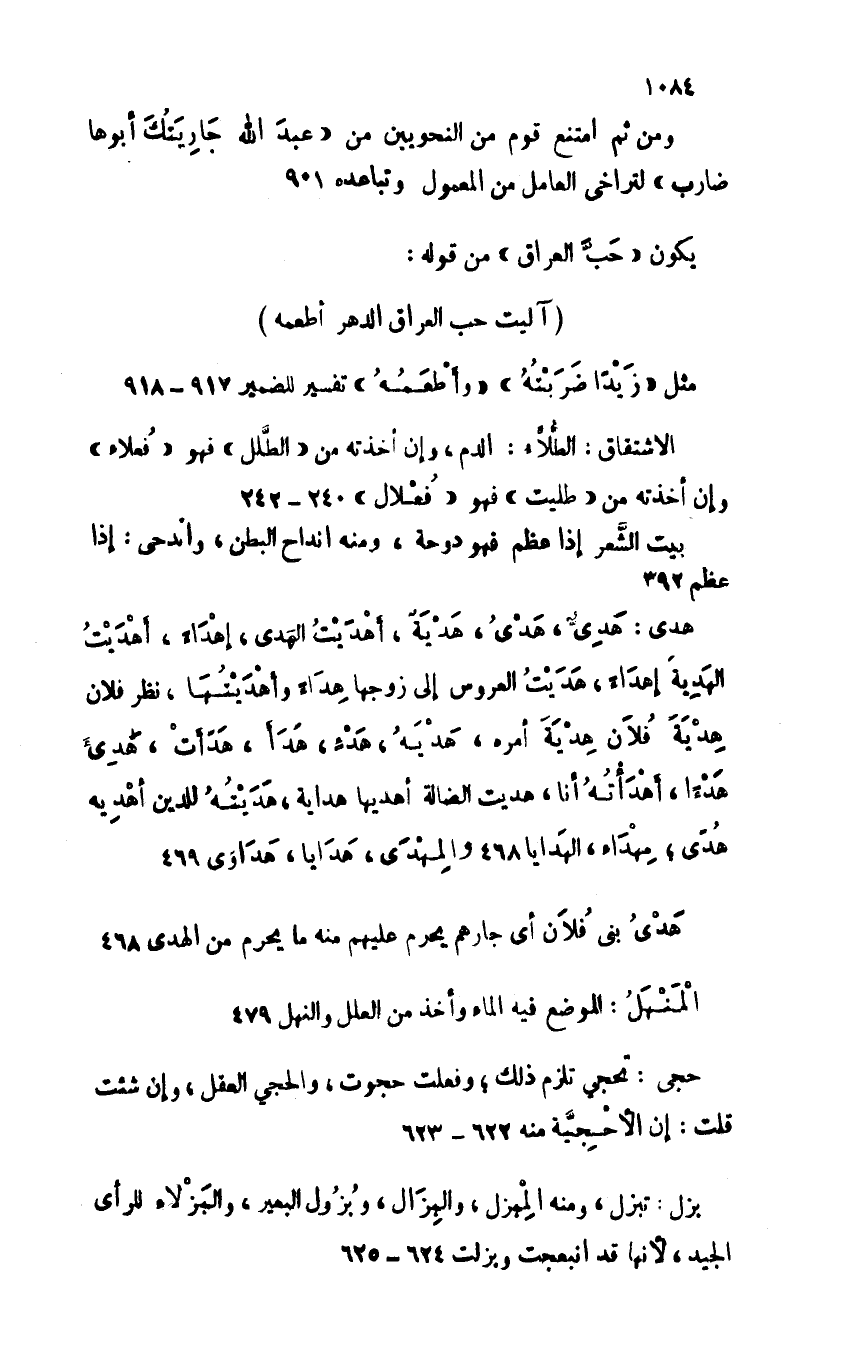 ١٠٨٤
ومن ثم امتنع قوم من النحويين من « عبدَ الله جَارِيَتُكَ أبوها
ضارب » لتراخى العامل من المعمول وتباعده ٩٠١
يكون « حَبَّ العراق » من قوله :
( آليت حب العراق الدهر أطعمه )
مثل « زَيْدًا ضَرَبْتُهُ » « وأَطْعَمُهُ » تفسير للضمير ٩١٧ – ٩١٨
الاشتقاق : الطُّلاَّء : الدم ، وإن أخذته من « الطَّلل » فهو « فُعلاء »
وإن أخذته من « طليت » فهو « فُعْلال » ٢٤٠ – ٢٤٢
بيت الشَّعر إذا عظم فهو دوحة ، ومنه انداح البطن ، واندحى : إذا
عظم ٣٩٢
هدى : هَدِىٌّ ، هَدْىُ ، هَدْيَةً ، أَهْدَيْتُ الهَدى ، إهْدَاءً ، أَهْدَيْتُ
الهَدِيةَ إهدَاءً ، هَدَيْتُ العروس إلى زوجها هِدَاءً وأهْدَيْتُهَا ، نظر فلان
هِدْيَةَ فُلاَن هِدْيَةَ أمره ، هَدْيَهُ ، هَدْء ، هَدَأَ ، هَدَأَتْ ، هَدِئَ
هَدْءًا ، أَهْدَأْتُهُ أنا ، هديت الضالة أهديها هداية ، هَدَيْتُهُ للدين أهْدِيه
هُدًى ؛ مِهْدَاء ، الهَدايا ٤٦٨ والمِهْدَى ، هَدَايا ، هَدَاوَى ٤٦٩
هَدْىُ بنى فُلاَن أى جارهم يحرم عليهم منه ما يحرم من الهدى ٤٦٨
الْمَنْهَلُ : الموضع فيه الماء وأخذ من العلل والنهل ٤٧٩
حجى : تحجي تلزم ذلك ؛ وفعلت حجوت ، والحجي العقل ، وإن شئت
قلت : إن الأحْجِيَّة منه ٦٢٢ – ٦٢٣
بزل : تبزل ، ومنه المِبْزل ، والبِزَال ، وبُزُول البعير ، والبَزْلاء للرأى
الجيد ، لأنها قد انبعجت وبزلت ٦٢٤ – ٦٢٥